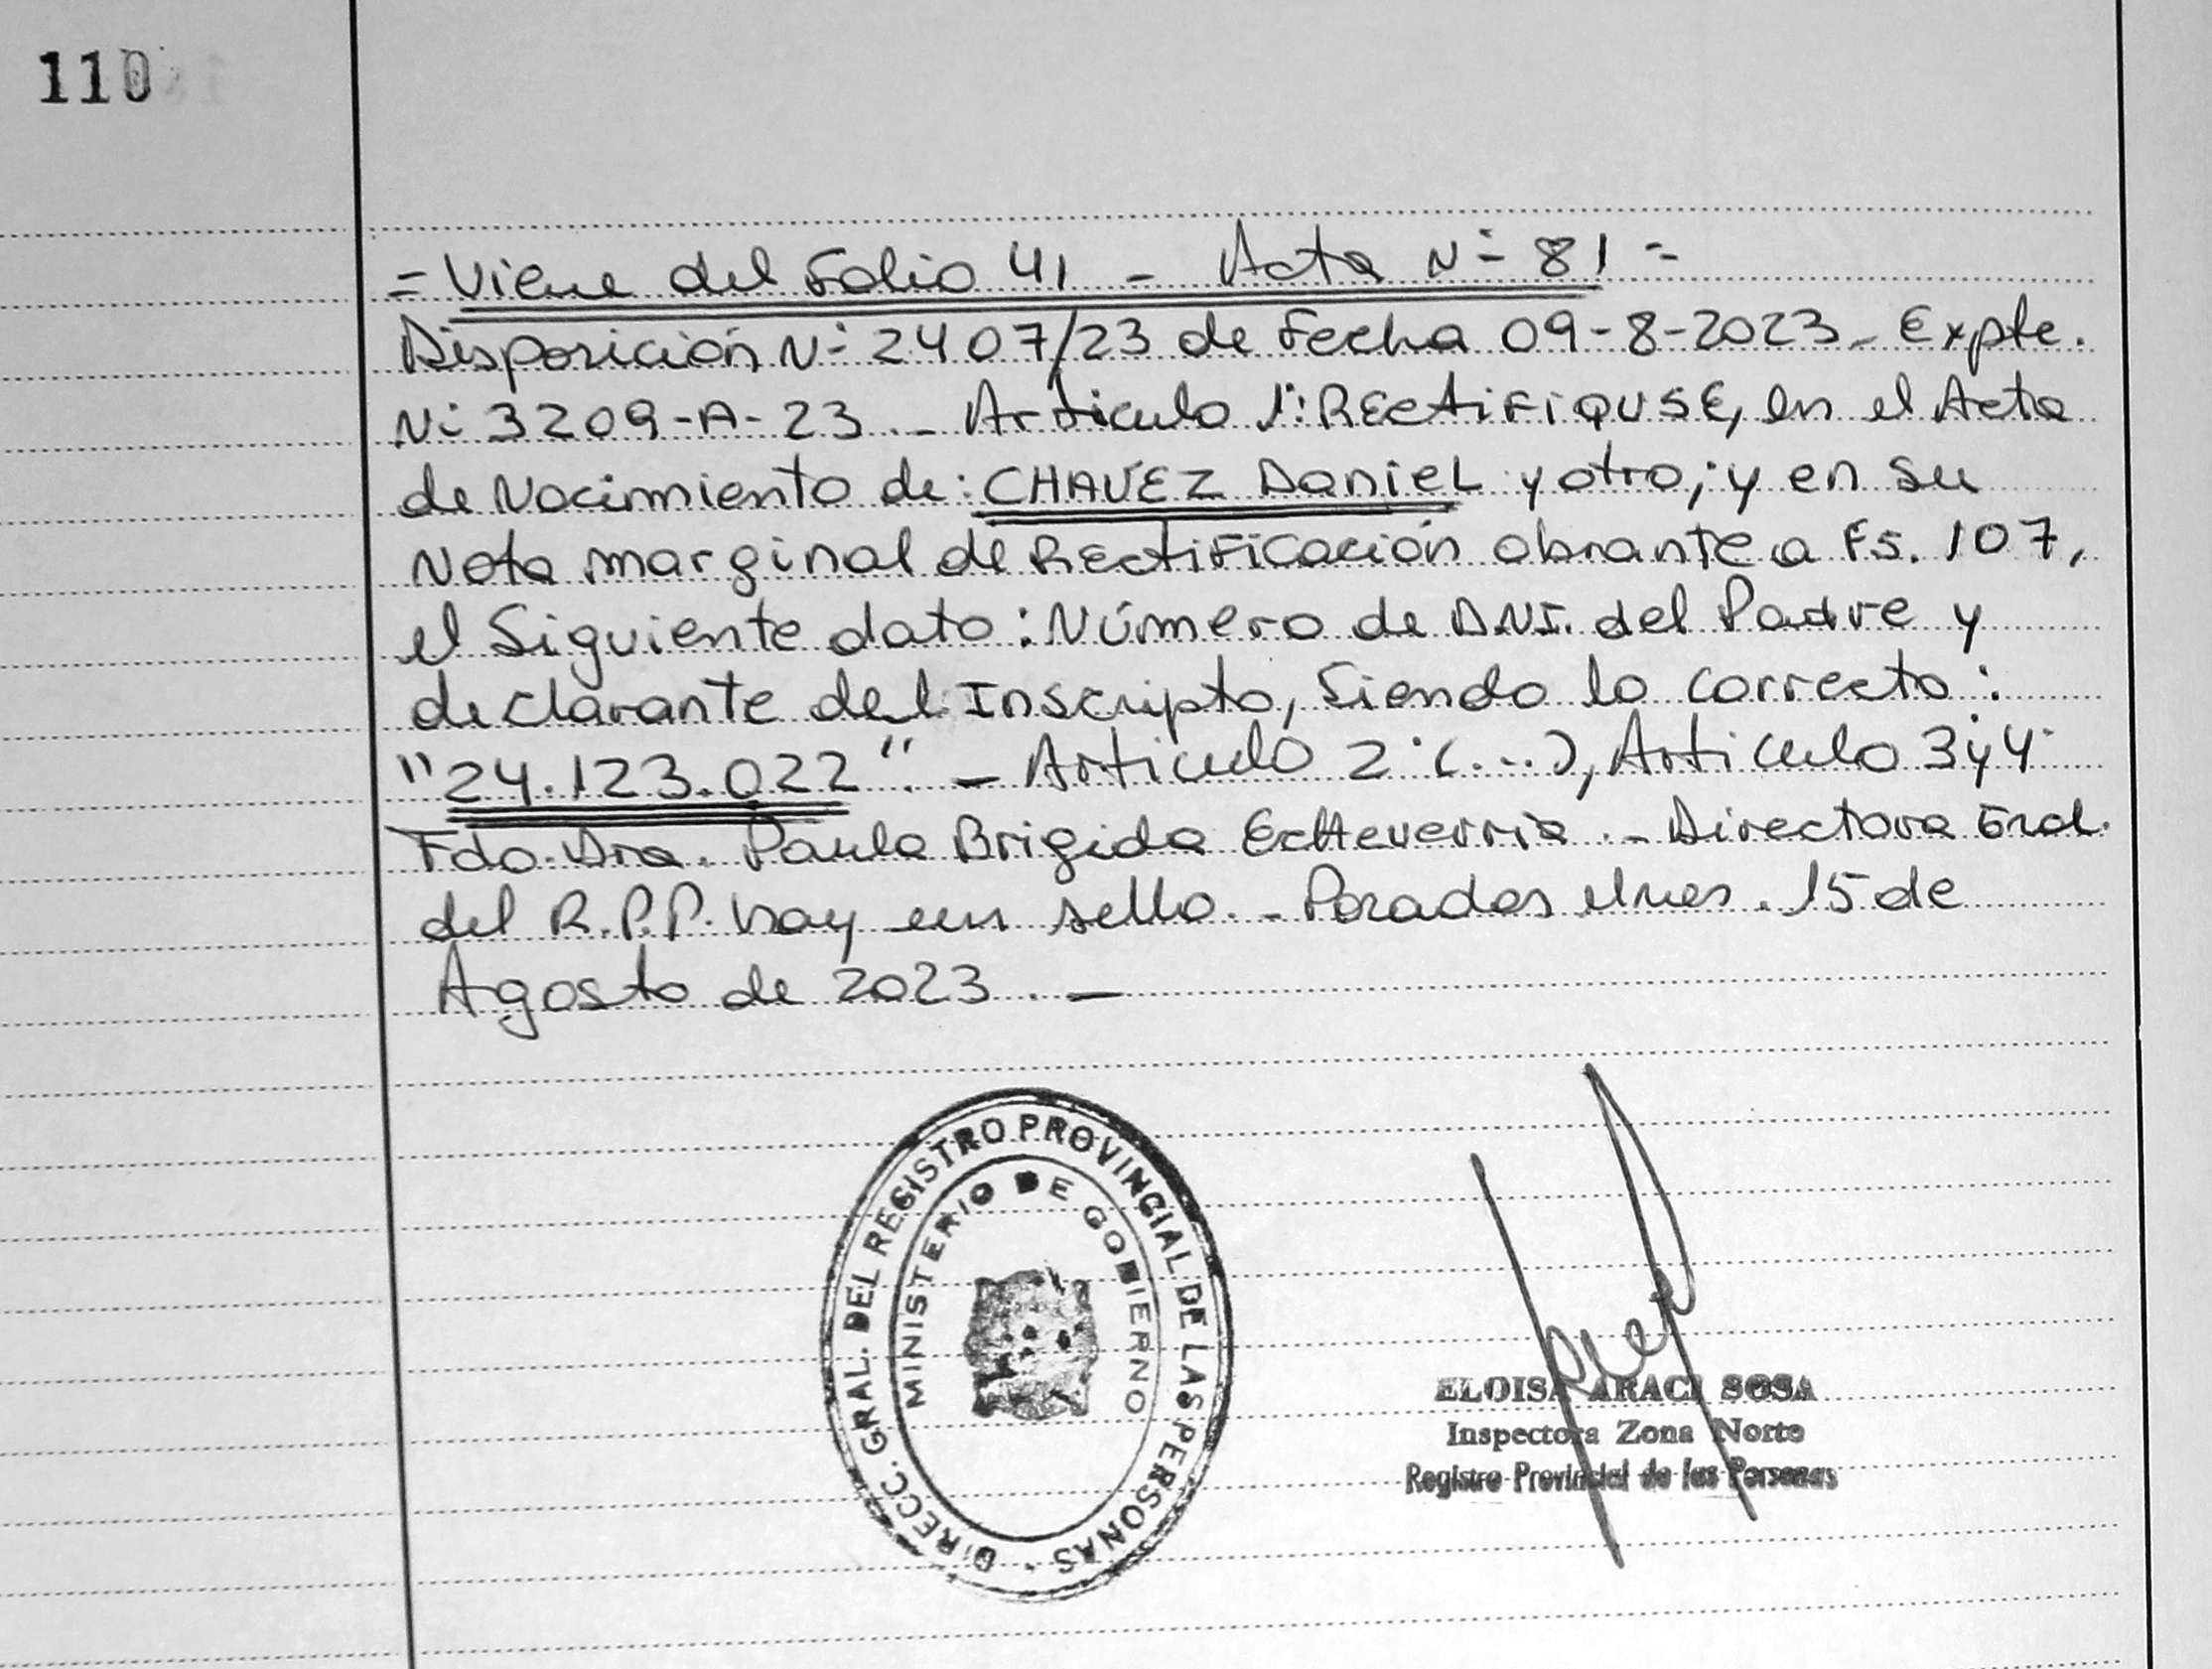 110
= Viene del Folio 41 - Acta N° 81 =
Disposición N° 2407/23 de Fecha 09-8-2023_ Expte.
N° 3209-A-23._ Articulo 1°: RECTIFIQUSE, en el Acta
de Nacimiento de: CHAVEZ DANIEL y otro; y en su
Nota marginal de Rectificación obrante a Fs. 107,
el Siguiente dato: Número de D.N.I. del Padre y
declarante del Inscripto, Siendo lo correcto:
"24.123.022". _ Articulo 2° (...), Articulo 3 y 4°
Fdo. Dra. Paula Brigida Echeverria._ Directora Gral.
del R.P.P. hay un sello._ Posadas Mnes. 15 de
Agosto de 2023._
DIRECC. GRAL. DEL REGISTRO PROVINCIAL DE LAS PERSONAS
MINISTERIO DE GOBIERNO
ELOISA ARACI SOSA
Inspectora Zona Norte
Registro Provincial de las Personas